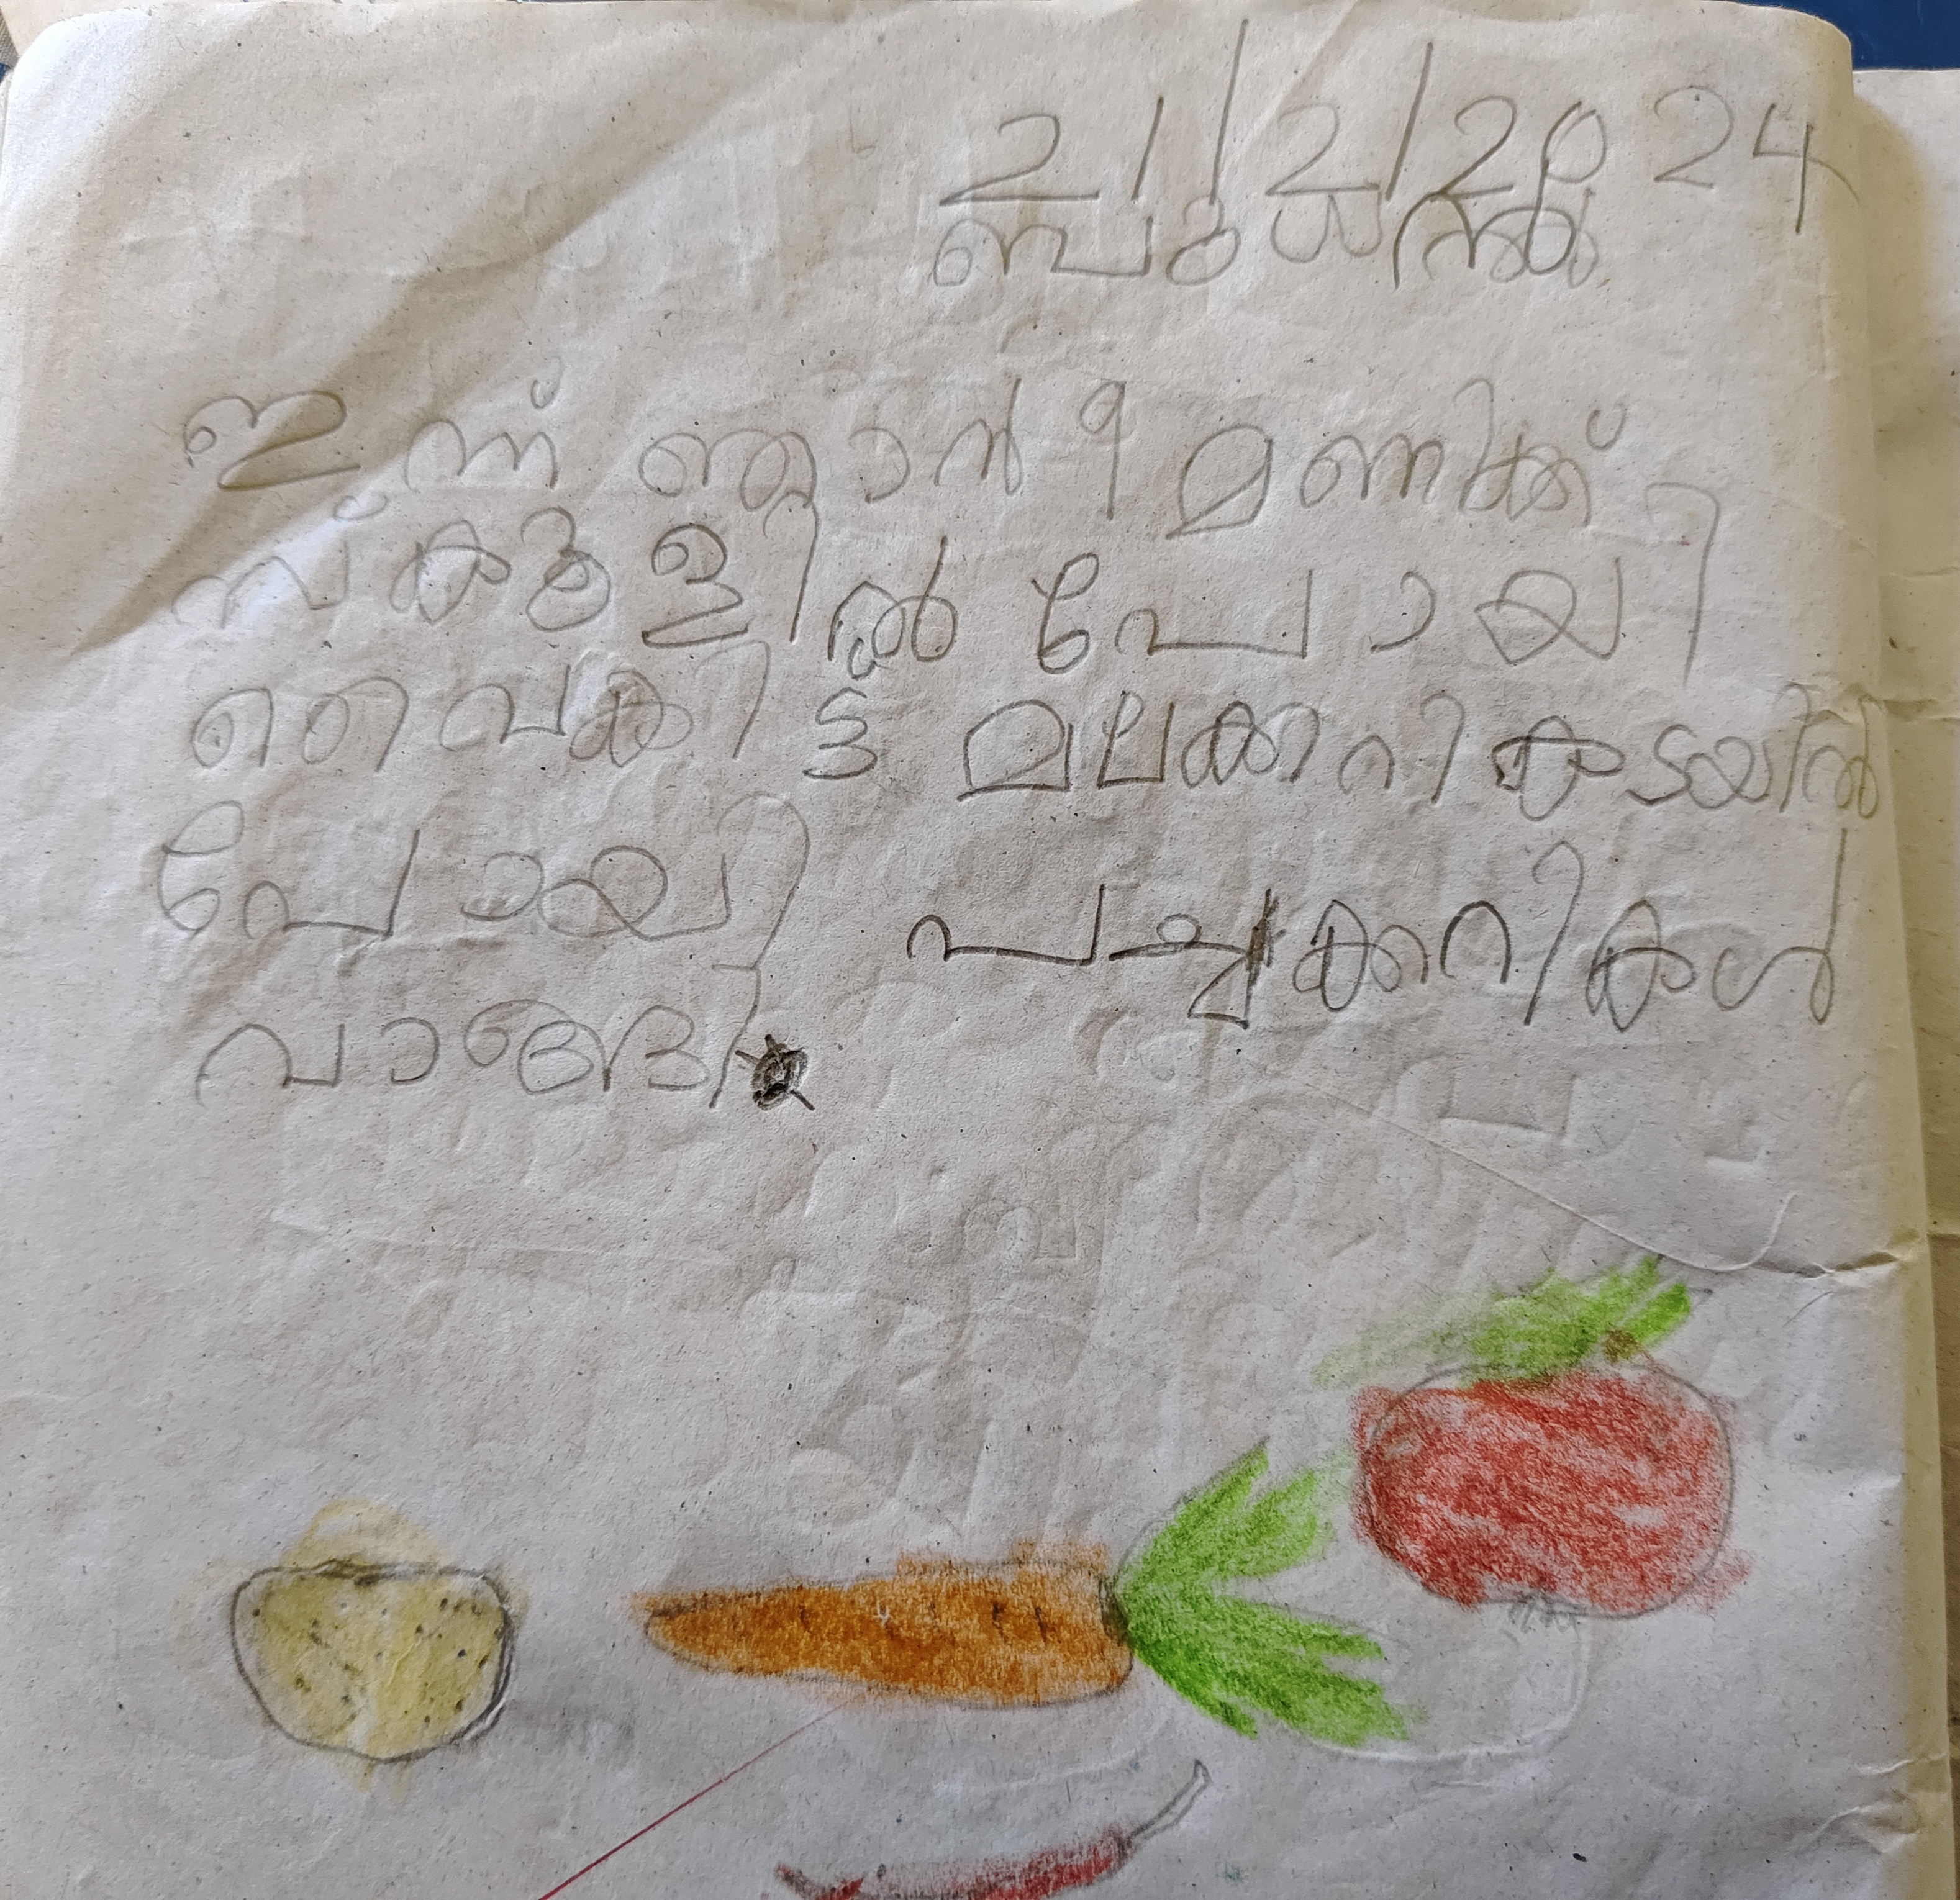 21/2/2024
ബുധൻ
ഇന്ന് ഞാൻ 9 മണിക്ക്
സ്കൂളിൽ പോയി
വൈകിട്ട് മലക്കറി കടയിൽ
പോയി പച്ചക്കറികൾ
വാങ്ങി